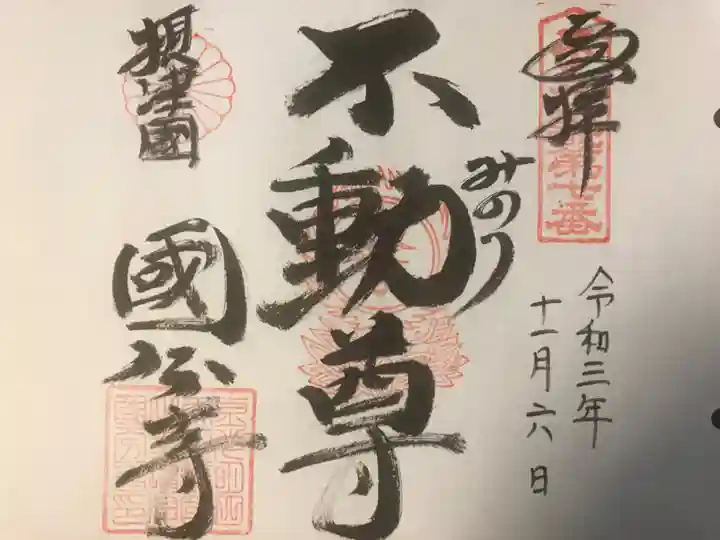 奉拝
第七番
令和三年
十一月六日
みのり
不動尊
摂津國
國分寺